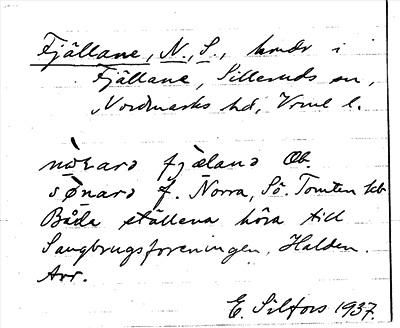 Fjällane, N., S., hmdr i
Fjällane, Silleruds sn,
Nordmarks hd, Vrml l.
fjæland Ob.
f. Norra, Sö. Tomten kb
Båda ställena höra till
Saugbrugsforeningen, Halden.
Arr.
E. Silfors 1937.